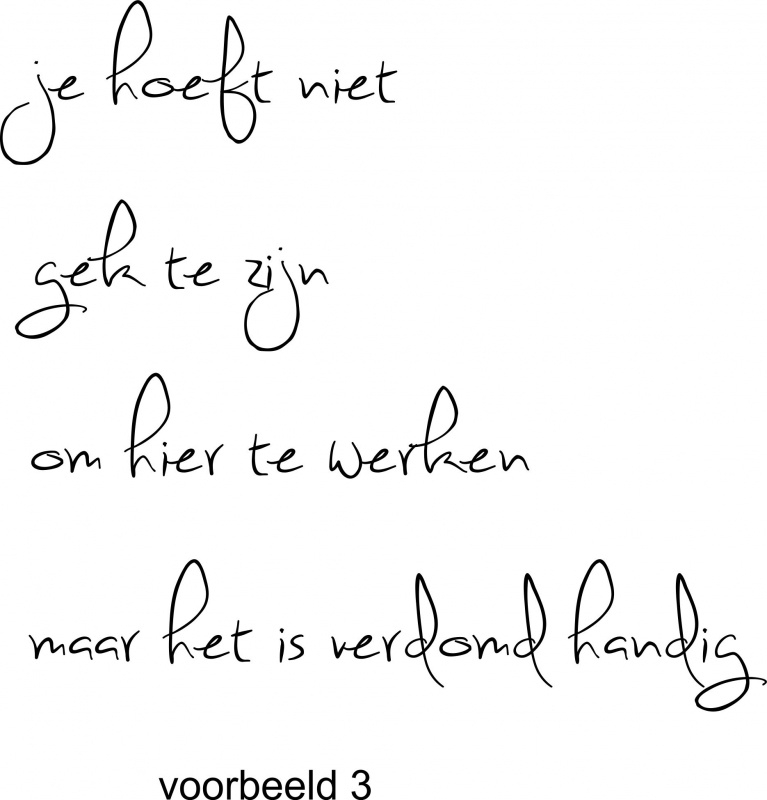 je hoeft niet
gek te zijn
om hier te werken
maar het is verdomd handig
voorbeeld 3